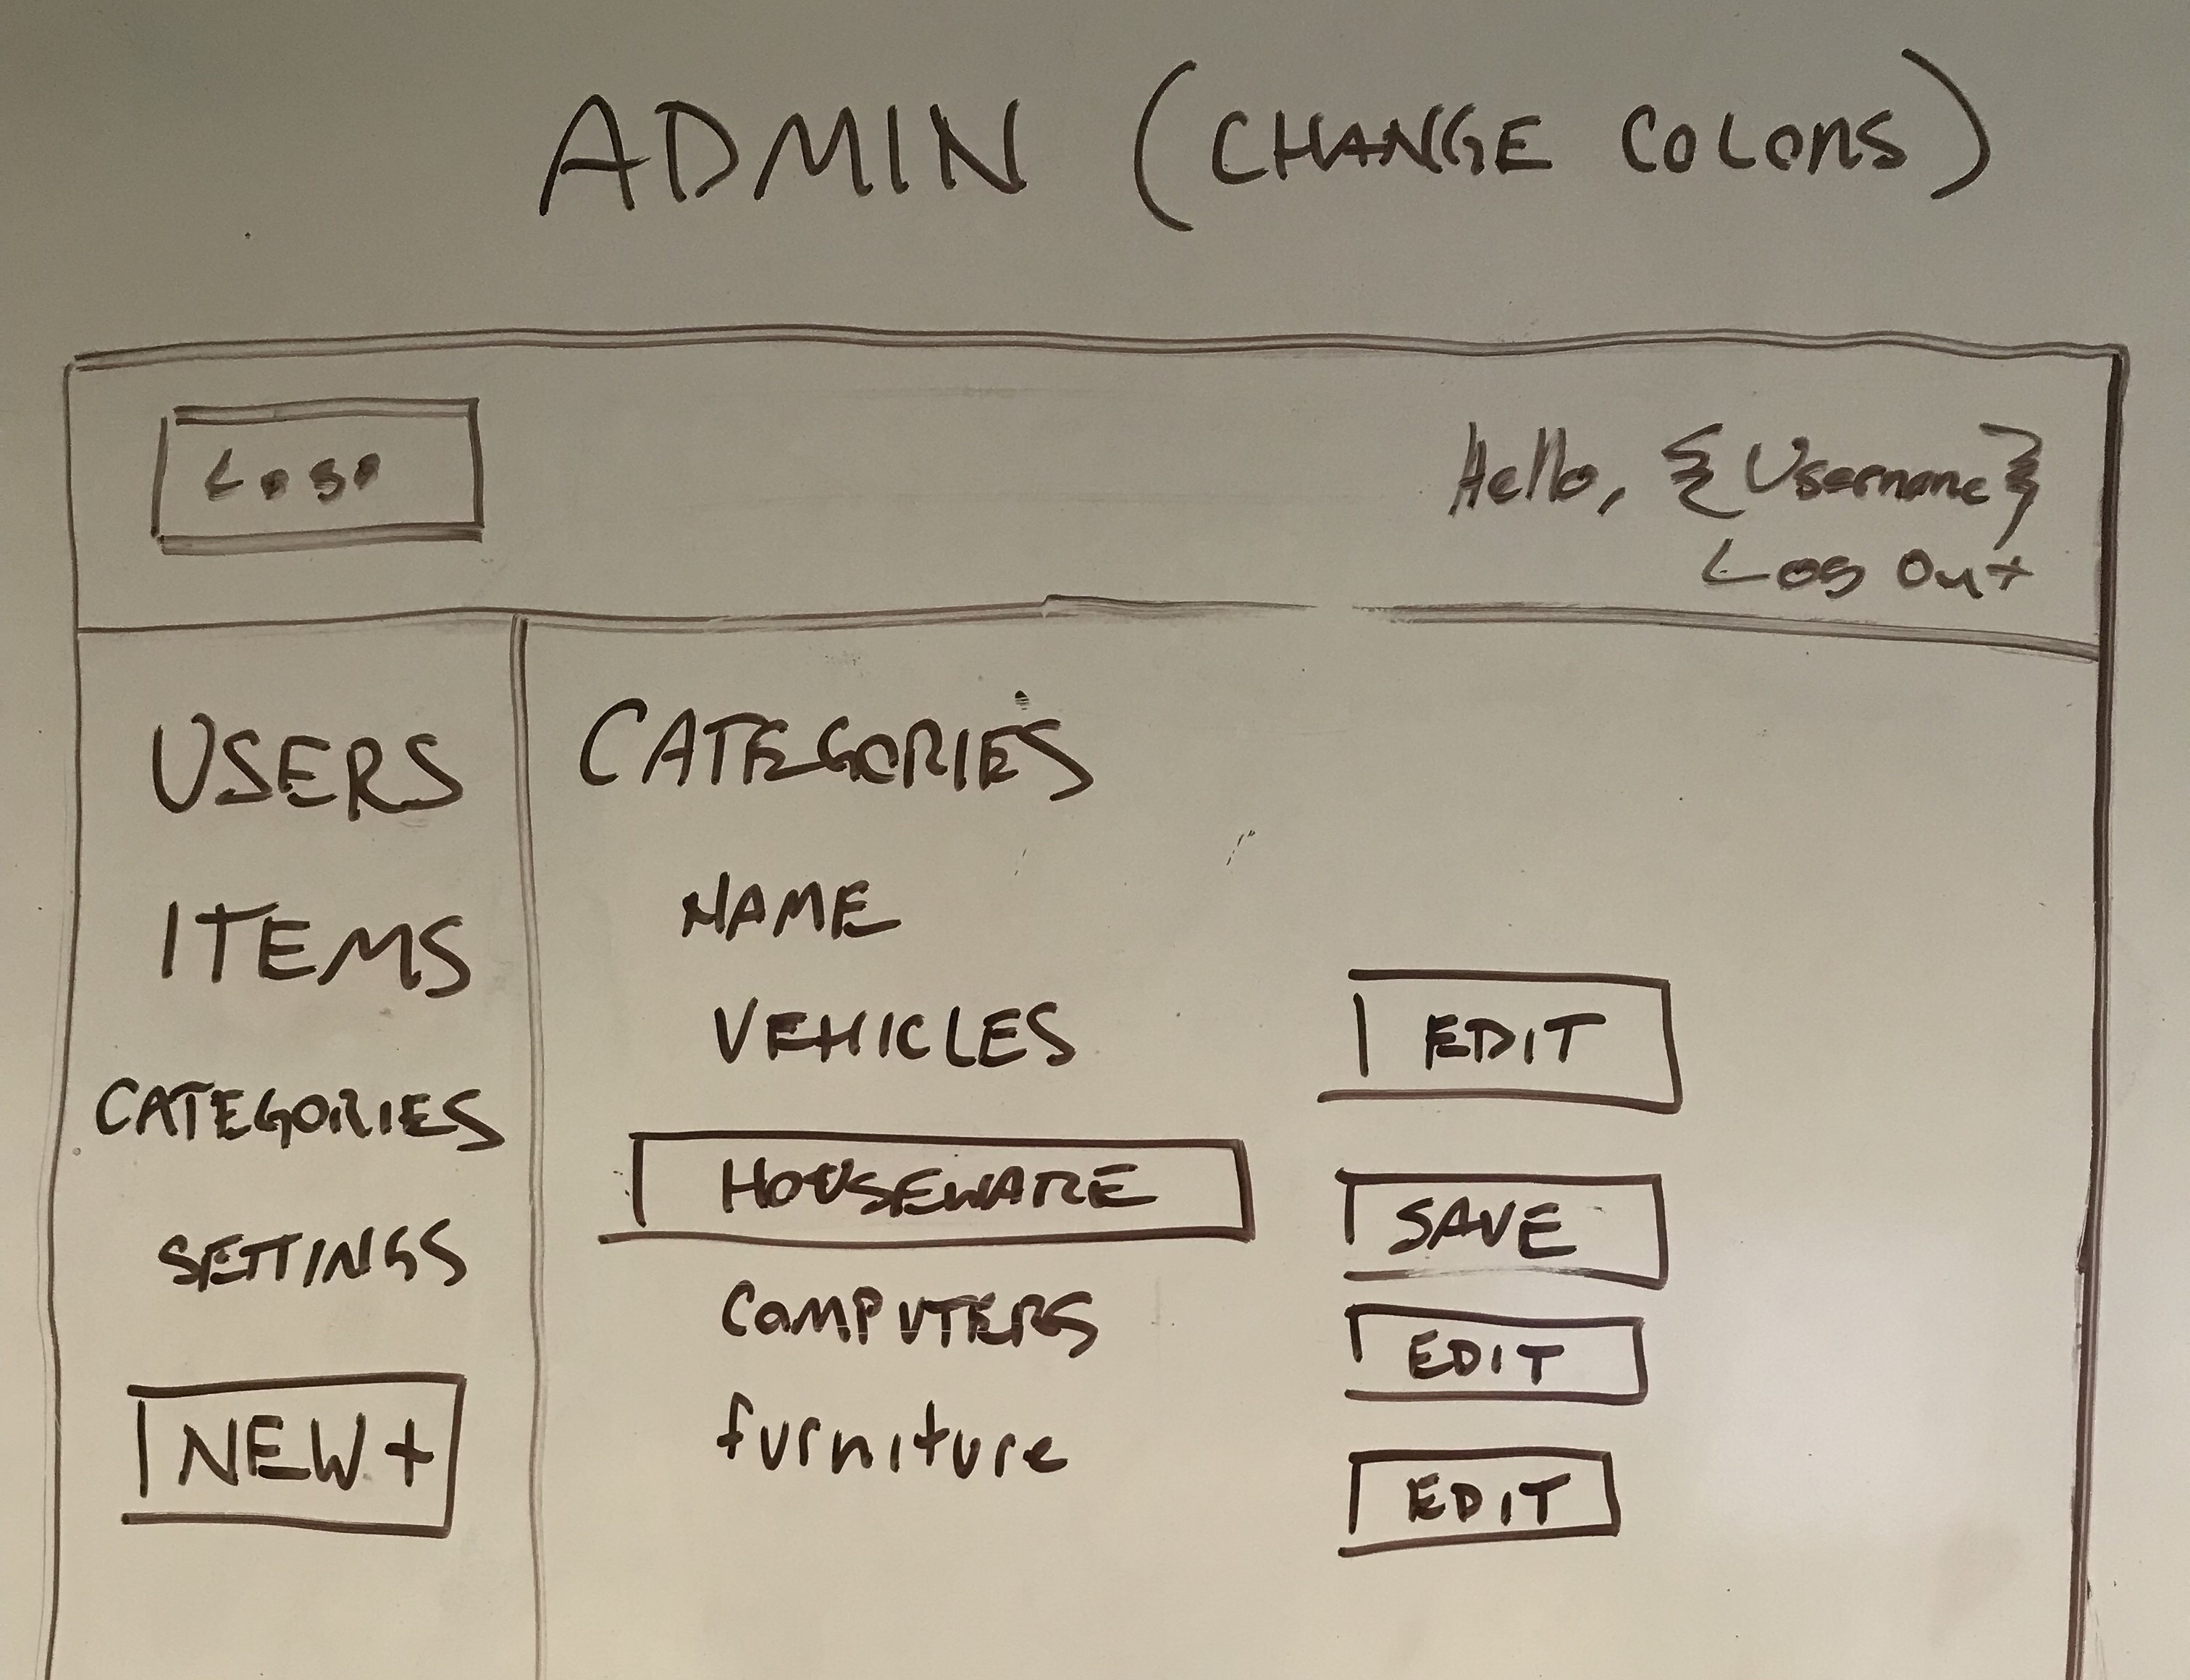 ADMIN (CHANGE COLORS)
Logo
Hello, {Username}
Log Out
USERS
ITEMS
CATEGORIES
SETTINGS
NEW +
CATEGORIES
NAME
VEHICLES EDIT
HOUSEWARE SAVE
COMPUTERS EDIT
furniture EDIT